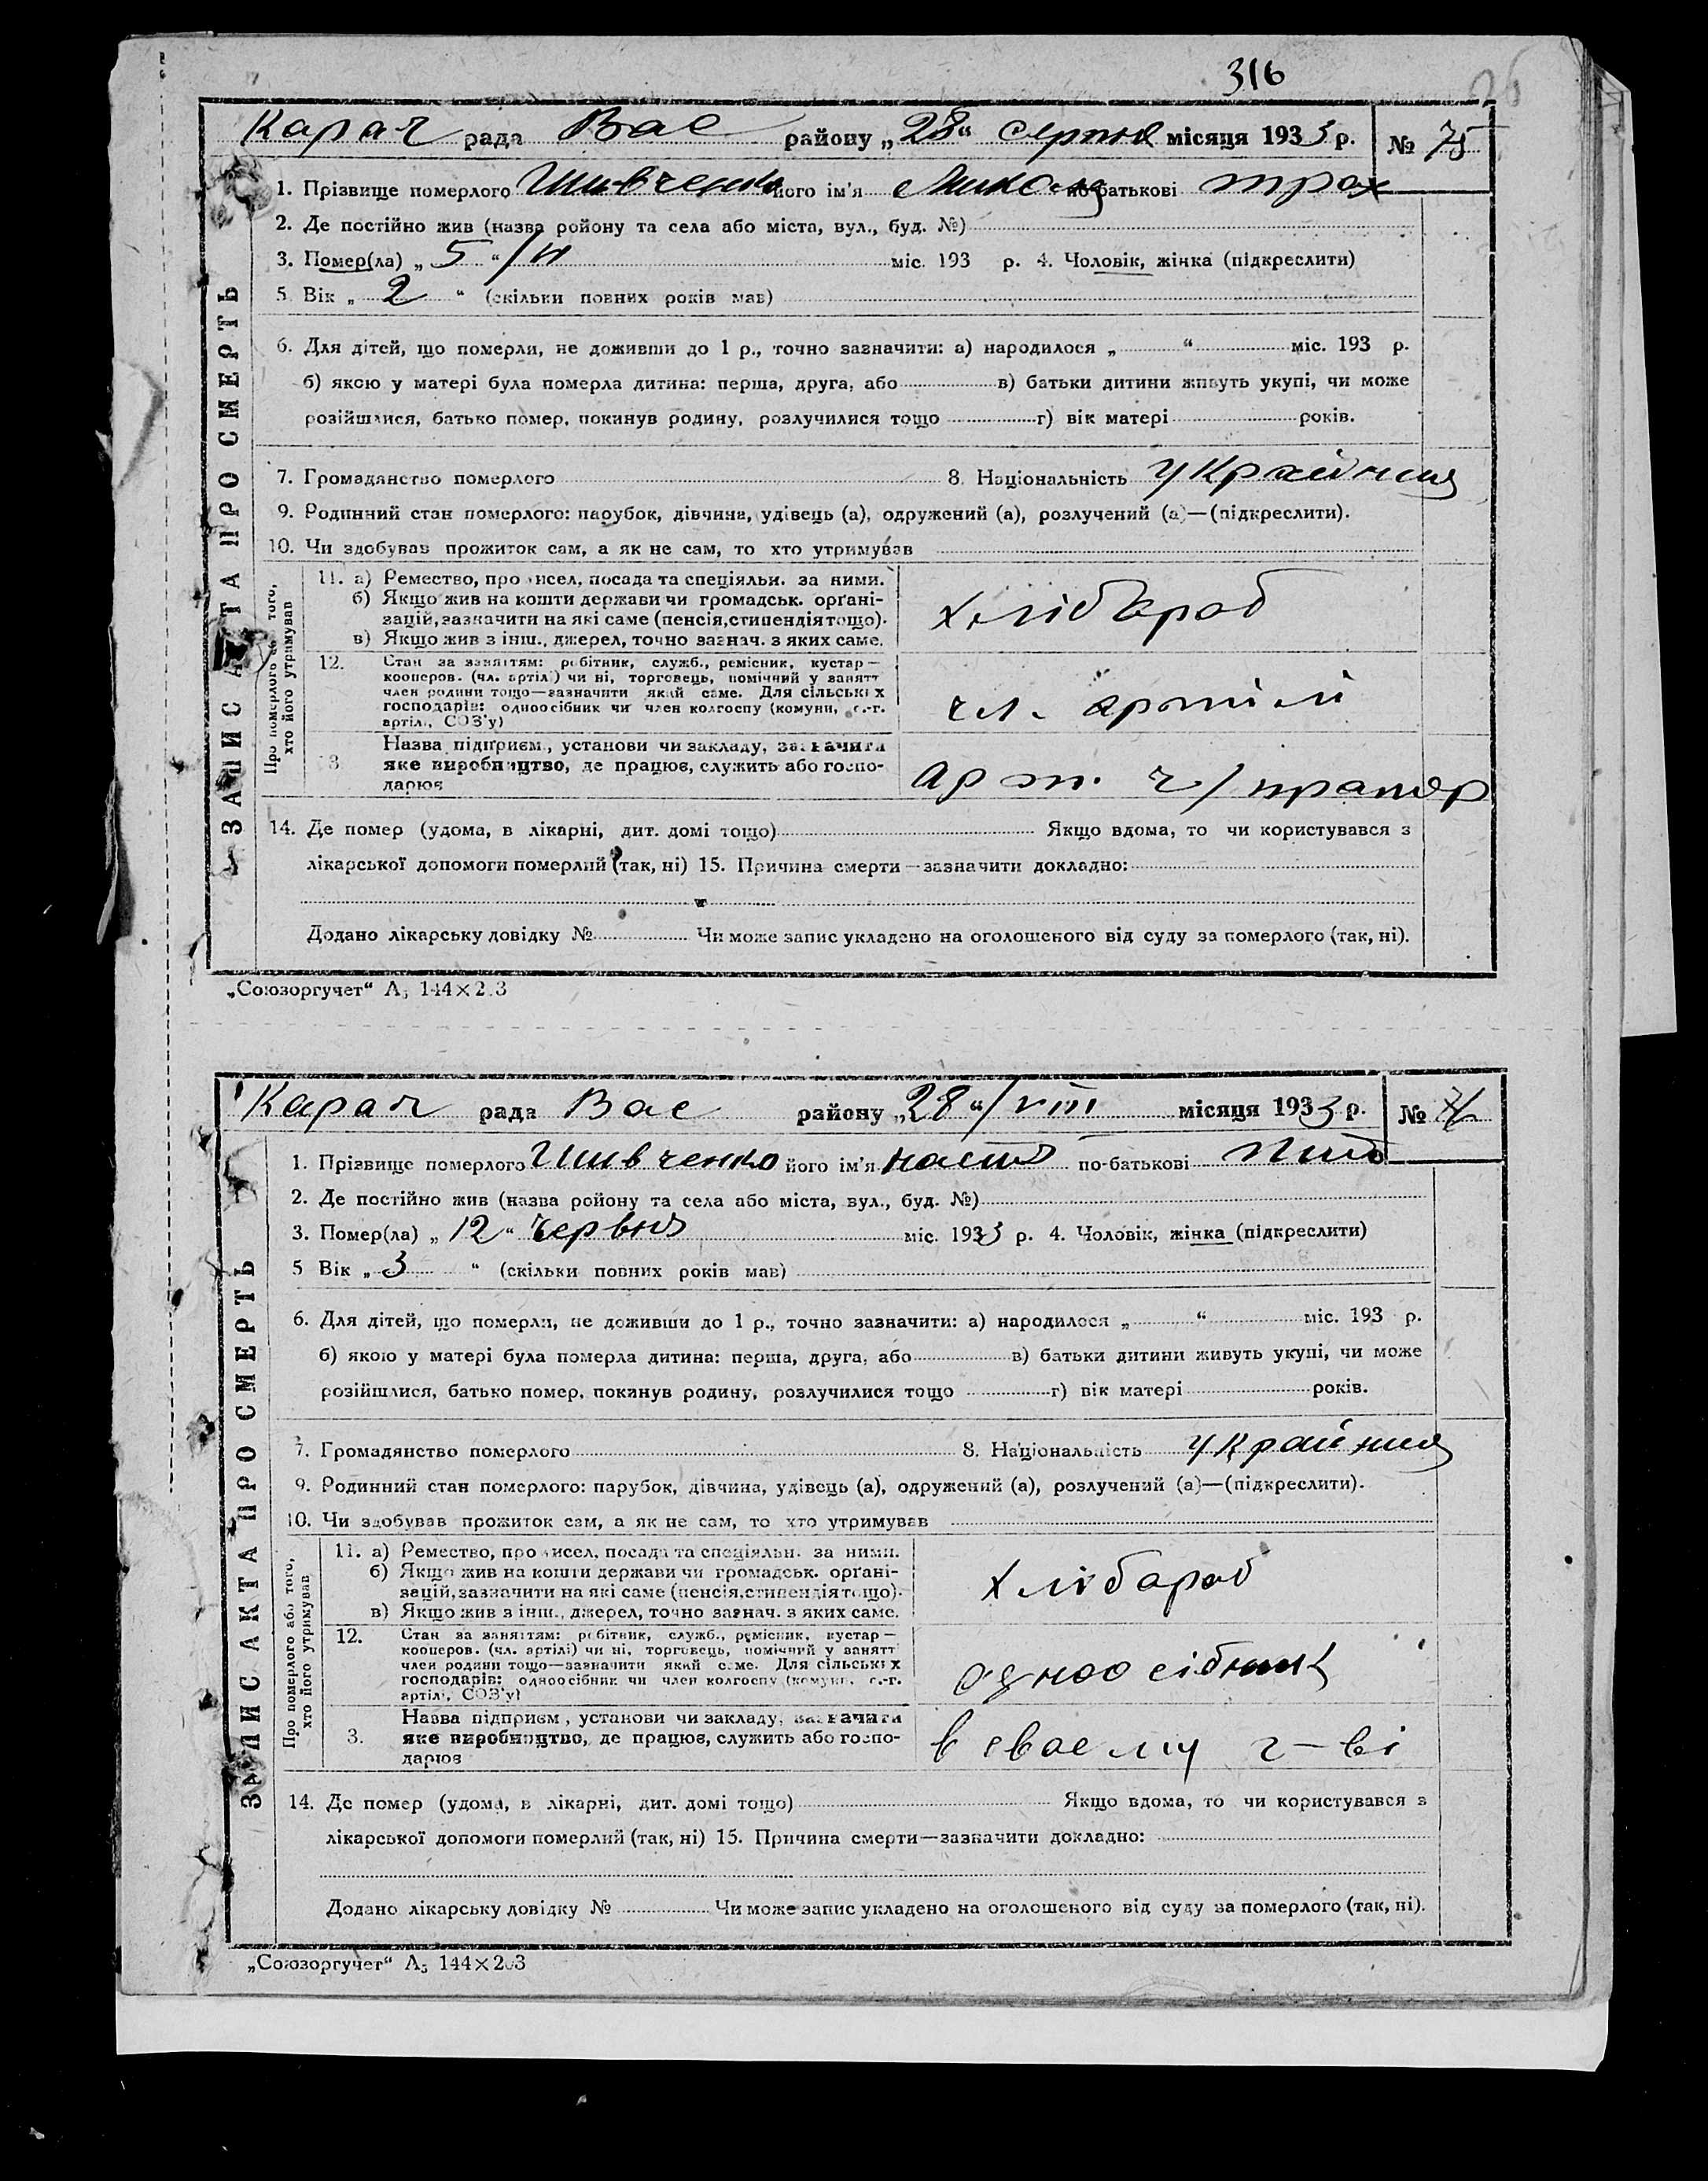 316
26
Карач рада Вас району „28“ серпня місяця 1933 р. № 75
1. Прізвище померлого Шивченко його ім'я Микола по-батькові трох
2. Де постійно жив (назва ройону та села або міста, вул., буд. №)
3. Помер(ла) „ 5 “ / міс. 193 р. 4. Чоловік, жінка (підкреслити)
5 Вік „ 2 “ (скільки повних років мав)
6. Для дітей, що померли, не доживши до 1 р., точно зазначити: а) народилося „ “ міс. 193 р.
б) якою у матері була померла дитина: перша, друга, або в) батьки дитини живуть укупі, чи може
розійшлися, батько помер, покинув родину, розлучилися тощо г) вік матері років.
7. Громадянство померлого 8. Національність україниця
9. Родинний стан померлого: парубок, дівчина, удівець (а), одружений (а), розлучений (а)—(підкреслити).
10. Чи здобував прожиток сам, а як не сам, то хто утримував
ЗАПИС АКТА ПРО СМЕРТЬ
Про померлого або того, хто його утримував
11. а) Ремество, про исел, посада та спеціяльн. за ними.
б) Якщо жив на кошти держави чи громадськ. органі-
зацій, зазначити на які саме (пенсія, стипендія тощо).
в) Якщо жив з інш., джерел, точно зазнач. з яких саме.
хлібароб
12. Стан за заняттям: робітник, служб., ремісник, кустар—
кооперов. (чл. артілі) чи ні, торговець, помічний у занятт
член родини тощо—зазначити який саме. Для сільських
господарів: одноосібник чи член колгоспу (комуни, с.-г.
артілі, СОЗ'у)
чл. артілі
3 Назва підприєм., установи чи закладу, зазначити
яке виробництво, де працює, служить або госпо-
дарює
арт. ч/прапор
14. Де помер (удома, в лікарні, дит. домі тощо) Якщо вдома, то чи користувався з
лікарської допомоги померлий (так, ні) 15. Причина смерти—зазначити докладно:
Додано лікарську довідку № Чи може запис укладено на оголошеного від суду за померлого (так, ні).
„Союзоргучет“ А5 144×203
Карач рада Вас району „28“/VIII місяця 1933 р. №
1. Прізвище померлого Шивченко його ім'я Настя по-батькові
2. Де постійно жив (назва ройону та села або міста, вул., буд. №)
3. Помер(ла) „ 12 “ червня міс. 1933 р. 4. Чоловік, жінка (підкреслити)
5 Вік „ 3 “ (скільки повних років мав)
6. Для дітей, що померли, не доживши до 1 р., точно зазначити: а) народилося „ “ міс. 193 р.
б) якою у матері була померла дитина: перша, друга, або в) батьки дитини живуть укупі, чи може
розійшлися, батько помер, покинув родину, розлучилися тощо г) вік матері років.
7. Громадянство померлого 8. Національність україниця
9. Родинний стан померлого: парубок, дівчина, удівець (а), одружений (а), розлучений (а)—(підкреслити).
10. Чи здобував прожиток сам, а як не сам, то хто утримував
ЗАПИС АКТА ПРО СМЕРТЬ
Про померлого або того, хто його утримував
11. а) Ремество, про исел, посада та спеціяльн. за ними.
б) Якщо жив на кошти держави чи громадськ. органі-
зацій, зазначити на які саме (пенсія, стипендія тощо).
в) Якщо жив з інш., джерел, точно зазнач. з яких саме.
хлібароб
12. Стан за заняттям: робітник, служб., ремісник, кустар—
кооперов. (чл. артілі) чи ні, торговець, помічний у занятт
член родини тощо—зазначити який саме. Для сільських
господарів: одноосібник чи член колгоспу (комуни, с.-г.
артілі, СОЗ'у)
одноосібник
3. Назва підприєм., установи чи закладу, зазначити
яке виробництво, де працює, служить або госпо-
дарює
в своему г-ві
14. Де помер (удома, в лікарні, дит. домі тощо) Якщо вдома, то чи користувався з
лікарської допомоги померлий (так, ні) 15. Причина смерти—зазначити докладно:
Додано лікарську довідку № Чи може запис укладено на оголошеного від суду за померлого (так, ні).
„Союзоргучет“ А5 144×203